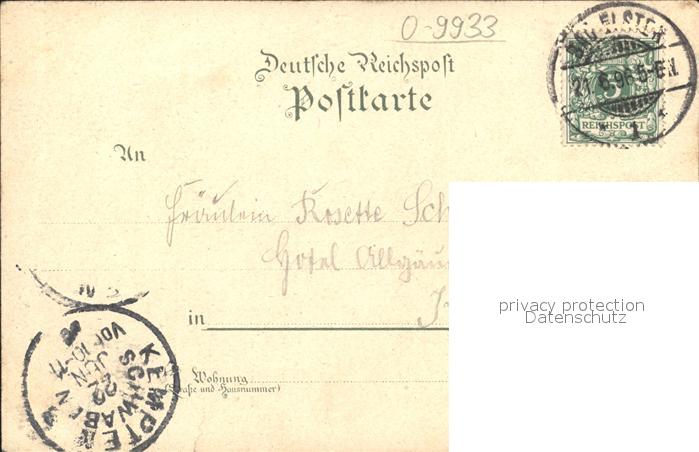 O-9933
BAD ELSTER
21.6.96.5-6N.
5
REICHSPOST
1
Deutsche Reichspost
Postkarte
An
Fräulein Rosette Sch
Hotel Allgäu
in
Wohnung
(Straße und Hausnummer)
KEMPTEN
SCHWABEN
22
JUN
VOR 10-11
privacy protection
Datenschutz